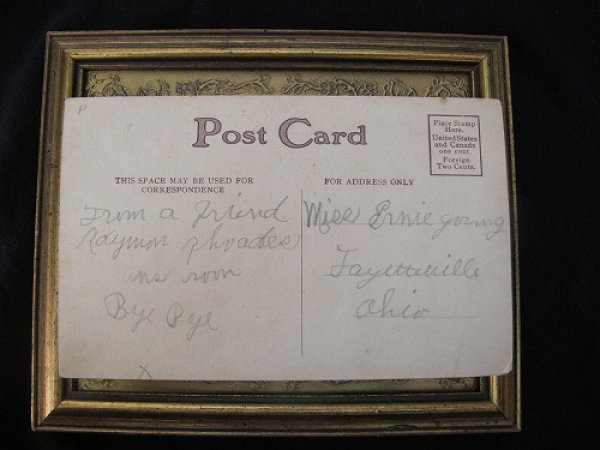 P
Post Card
Place Stamp
Here.
United States
and Canada
one cent.
Foreign
Two Cents.
THIS SPACE MAY BE USED FOR
CORRESPONDENCE
From a Friend
Raymon Rhoades
ans soon
Bye Bye
X
FOR ADDRESS ONLY
Miss Ernie young
Fayetteville
Ohio